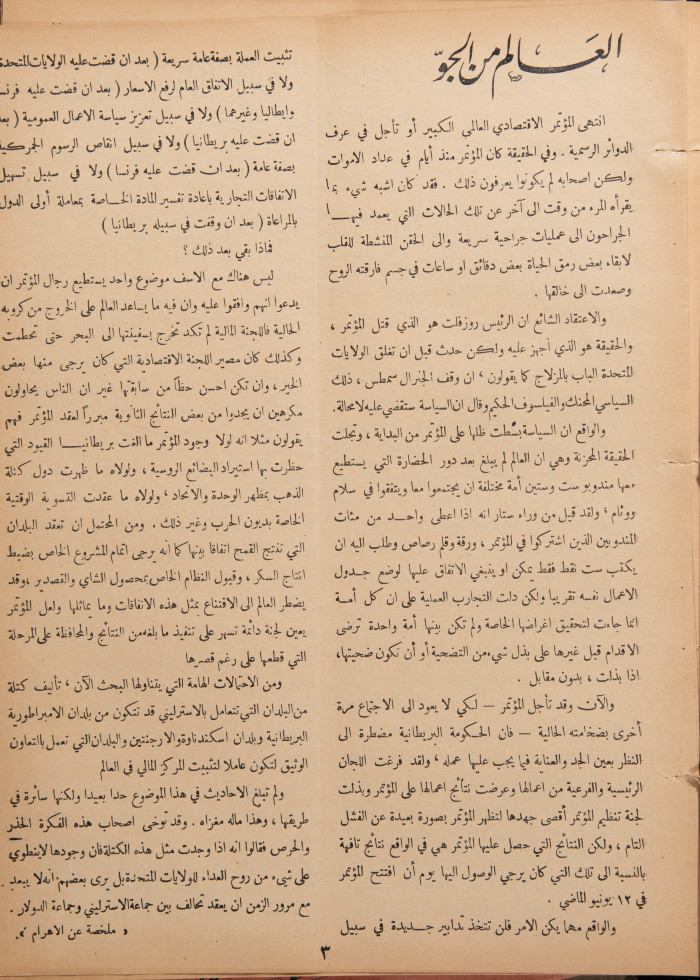 العالم من الجو
انتهى المؤتمر الاقتصادي العالمي الكبير أو تأجل في عرف
الدوائر الرسمية . وفي الحقيقة كان المؤتمر منذ أيام في عداد الاموات
ولكن اصحابه لم يكونوا يعرفون ذلك . فقد كان اشبه شيء بما
يقرأه المرء من وقت الى آخر عن تلك الحالات التي يعمد فيها
الجراحون الى عمليات جراحية سريعة والى الحقن المنشطة للقلب
لابقاء بعض رمق الحياة بعض دقائق او ساعات في جسم فارقته الروح
وصعدت الى خالقها .
والاعتقاد الشائع ان الرئيس روزفلت هو الذي قتل المؤتمر ،
والحقيقة هو الذي أجهز عليه ولكن حدث قبل ان تغلق الولايات
المتحدة الباب بالمزلاج كما يقولون ، ان وقف الجنرال سمطس ، ذلك
السياسي المحنك والفيلسوف الحكيم وقال ان السياسة ستقضي عليه لا محالة.
والواقع ان السياسة بسطت ظلها على المؤتمر من البداية ، وتجلت
الحقيقة المحزنة وهي ان العالم لم يبلغ بعد دور الحضارة التي يستطيع
معها مندوبو ست وستين أمة مختلفة ان يجتمعوا معا ويتفقوا في سلام
ووئام ، ولقد قيل من وراء ستار انه اذا اعطى واحد من مئات
المندوبين الذين اشتركوا في المؤتمر ، ورقة وقلم رصاص وطلب اليه ان
يكتب ست نقط فقط يمكن او ينبغي الاتفاق عليها لوضع جدول
الاعمال نفسه تقريبا ولكن دلت التجارب العملية على ان كل أمة
انما جاءت لتحقيق اغراضها الخاصة ولم تكن بينها أمة واحدة ترضى
الاقدام قبل غيرها على بذل شيء من التضحية أو أن تكون ضحيتها،
اذا بذلت ، بدون مقابل .
والآن وقد تأجل المؤتمر – لكي لا يعود الى الاجتماع مرة
أخرى بضخامته الحالية – فان الحكومة البريطانية مضطرة الى
النظر بعين الجد والعناية فيما يجب عليها عمله ، ولقد فرغت اللجان
الرئيسية والفرعية من اعمالها وعرضت نتائج اعمالها على المؤتمر وبذلت
لجنة تنظيم المؤتمر أقصى جهدها لتظهر المؤتمر بصورة بعيدة عن الفشل
التام ، ولكن النتائج التي حصل عليها المؤتمر هي في الواقع نتائج تافهة
بالنسبة الى تلك التي كان يرجي الوصول اليها يوم أن افتتح المؤتمر
في ١٢ يونيو الماضي .
والواقع مهما يكن الامر فلن تتخذ تدابير جديدة في سبيل
تثبيت العملة بصفة عامة سريعة ( بعد ان قضت عليه الولايات المتحدة
ولا في سبيل الاتفاق العام لرفع الاسعار ( بعد ان قضت عليه فرنسا
وايطاليا وغيرهما ) ولا في سبيل تعزيز سياسة الاعمال العمومية ( بعد
ان قضت عليه بريطانيا ) ولا في سبيل انقاص الرسوم الجمركية
بصفة عامة ( بعد ان قضت عليه فرنسا ) ولا في سبيل تسهيل
الاتفاقات التجارية باعادة تفسير المادة الخاصة بمعاملة أولى الدول
بالمراعاة ( بعد ان وقفت في سبيله بريطانيا )
فماذا بقي بعد ذلك ؟
ليس هناك مع الاسف موضوع واحد يستطيع رجال المؤتمر ان
يدعوا انهم وافقوا عليه وان فيه ما يساعد العالم على الخروج من كروبه
الحالية فاللجنة المالية لم تكد تخرج بسفينتها الى البحر حتى تحطمت
وكذلك كان مصير اللجنة الاقتصادية التي كان يرجى منها بعض
الخير ، وان تكن احسن حظاً من سابقتها غير ان الناس يحاولون
مكرهين ان يجدوا من بعض النتائج الثانوية مبرراً لعقد المؤتمر فهم
يقولون مثلا انه لولا وجود المؤتمر ما الغت بريطانيا القيود التي
حظرت بها استيراد البضائع الروسية ، ولولاه ما ظهرت دول كتلة
الذهب بمظهر الوحدة والاتحاد ، ولولاه ما عقدت التسوية الوقتية
الخاصة بديون الحرب وغير ذلك . ومن المحتمل ان تعقد البلدان
التي تنتج القمح اتفاقا بينها كما انه يرجى اتمام المشروع الخاص بضبط
انتاج السكر ، وقبول النظام الخاص بمحصول الشاي والقصدير ، وقد
يضطر العالم الى الاقتناع بمثل هذه الاتفاقات وما يماثلها ولعل المؤتمر
يعين لجنة دائمة تسهر على تنفيذ ما بلغه من النتائج والمحافظة على المرحلة
التي قطعها على رغم قصرها
ومن الاحتمالات الهامة التي يتناولها البحث الآن ، تأليف كتلة
من البلدان التي تتعامل بالاسترليني قد تتكون من بلدان الامبراطورية
البريطانية وبلدان اسكندناوة والارجنتين والبلدان التي تعمل بالتعاون
الوثيق لتكون عاملا لتثبيت المركز المالي في العالم
ولم تبلغ الاحاديث في هذا الموضوع حدا بعيدا ولكنها سائرة في
طريقها ، وهذا ماله مغزاه . وقد توخى اصحاب هذه الفكرة الحذر
والحرص فقالوا انه اذا وجدت مثل هذه الكتلة فان وجودها لا ينطوي
على شيء من روح العداء للولايات المتحدة بل يرى بعضهم: انه لا يبعد
مع مرور الزمن ان يعقد تحالف بين جماعة الاسترليني وجماعة الدولار .
« ملخصة عن الاهرام » .
٣